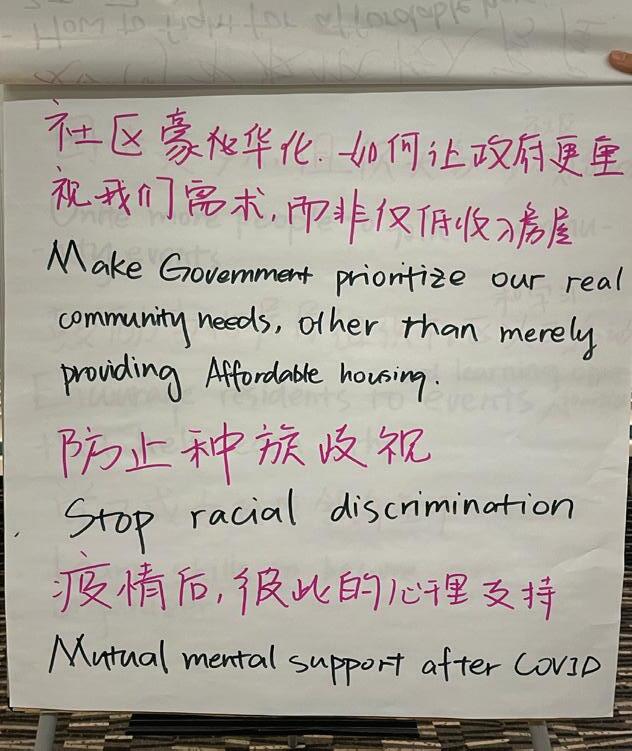 How to fight for affordable
社区豪华化.如何让政府更重
视我们需求,而非仅低收入房屋
Make Government prioritize our real
community needs, other than merely
providing Affordable housing.
防止种族歧视
Stop racial discrimination
疫情后,彼此的心理支持
Mutual mental support after COVID